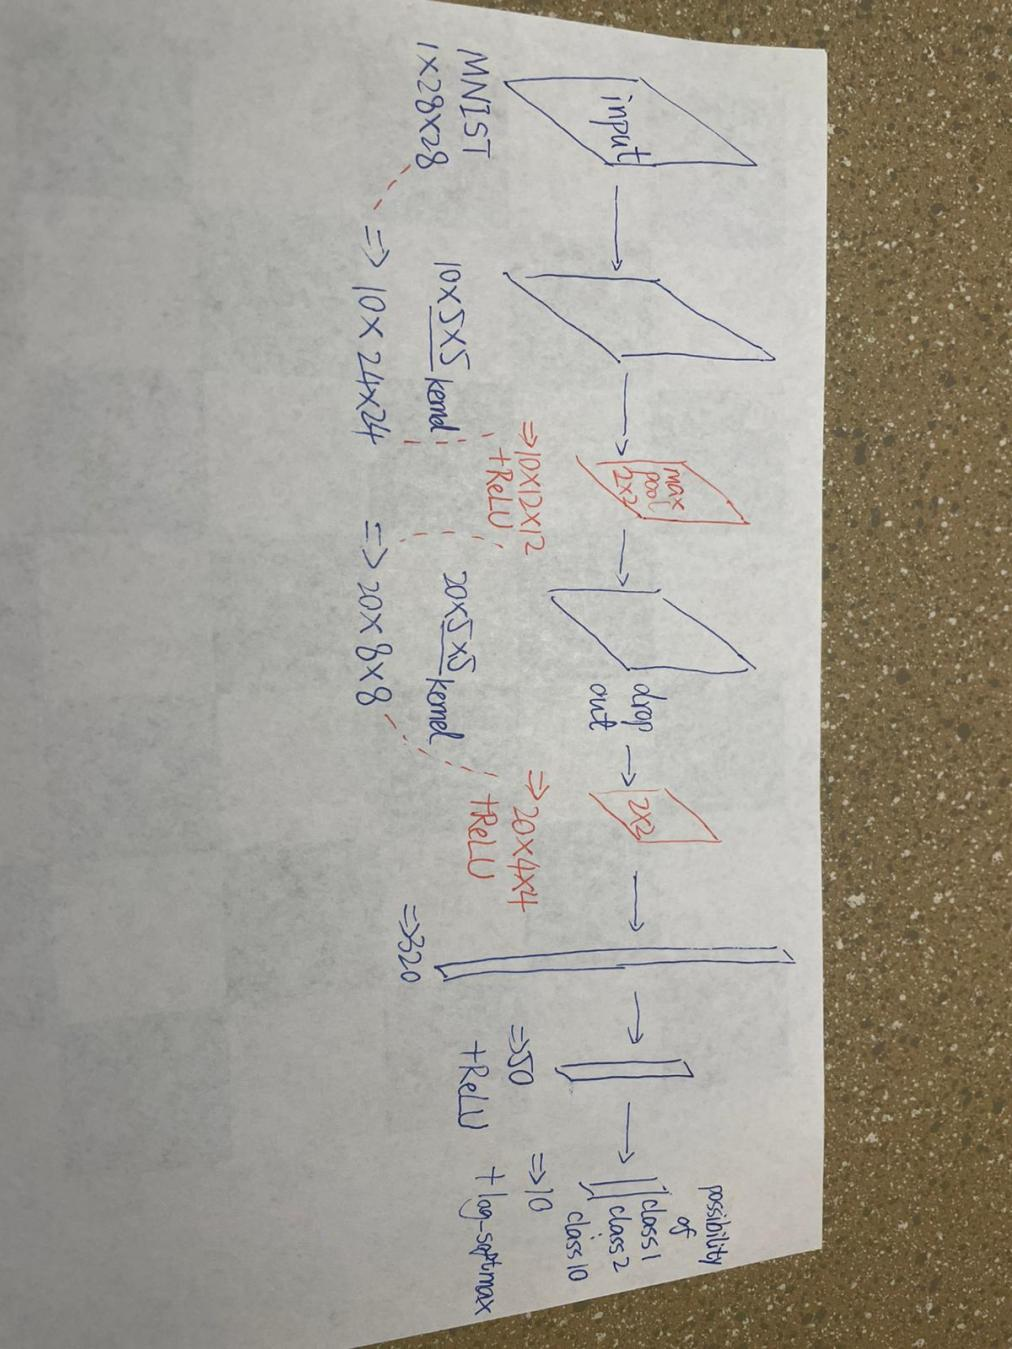 input
MNIST
1x28x28
10x5x5 kernel
=> 10x24x24
max
pool
2x2
=>10x12x12
+ReLU
20x5x5 kernel
=> 20x8x8
drop
out
2x2
=> 20x4x4
+ReLU
=>320
=>50
+ReLU
possibility
of
class 1
class 2
:
class 10
=>10
+log-softmax